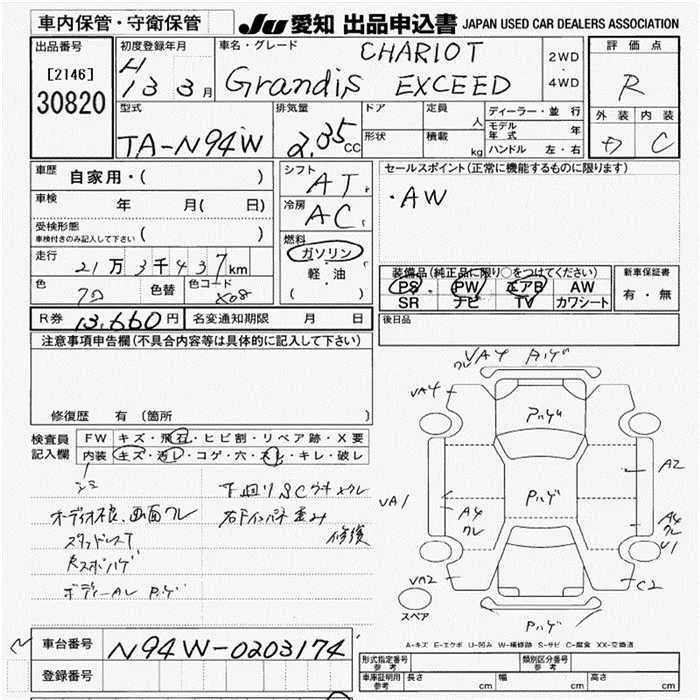 車内保管・守衛保管
JU 愛知 出品申込書 JAPAN USED CAR DEALERS ASSOCIATION
出品番号
[2146]
30820
初度登録年月
H
13 3月
車名・グレード
CHARIOT
Grandis EXCEED
2WD
・
4WD
評価点
R
外装 内装
C
型式
TA-N94W
排気量
2.35 CC
ドア
形状
定員
人
積載
kg
ディーラー・並行
モデル年式 年
ハンドル 左・右
車歴 自家用・( )
車検 年 月( 日)
受検形態
車検付きのみ記入して下さい ( )
走行
21万3千437km
色
色替
色コード
シフト
AT
冷房
AC
燃料
ガソリン
軽・油
( )
セールスポイント(正常に機能するものに限ります)
・AW
装備品(純正品に限り○をつけてください)
PS PW エアB AW
SR ナビ TV カワシート
新車保証書
有・無
R券 13,660円 名変通知期限 月 日
後日品
注意事項申告欄(不具合内容等は具体的に記入して下さい)
修復歴 有 〔箇所 〕
検査員
記入欄
FW キズ・飛石・ヒビ割・リペア跡・X要
内装 キズ・汚レ・コゲ・穴・スレ・キレ・破レ
シミ
オーディオ不良、画面ワレ
スタッドレスT
Rスポハゲ
ボディーAレ Pハゲ
下回りSCウキメクレ
右Fインパネ歪み
修復
VA4 Aハゲ
ワレ
VA4
Pハゲ
A2
VA1
Pハゲ
A4
ワレ
A4
ワレ
U1
VA2
C2
スペア
Pハゲ
A-キズ E-エクボ U-凹み W-補修跡 S-サビ C-腐食 XX-交換済
車台番号 N94W-0203174
登録番号
形式指定番号
参考
類別区分番号
参考
車庫証明用
参考
長さ cm 幅 cm 高さ cm